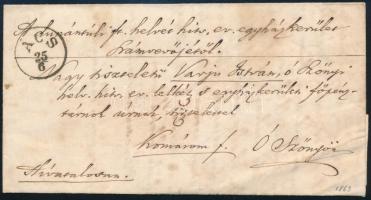 A dunántúli h. helvét hitv. ev. egyházkerület
számvevőjétől.
ACS
25
6
Nagy tiszteletű Varju István, ó Szőnyi
helv. hitv. ev. lelkész, s egyházkerületi főpénz-
tárnok úrnak, tisztelettel
Komárom f. Ó Szőnyön
Hivatalosan.
1869